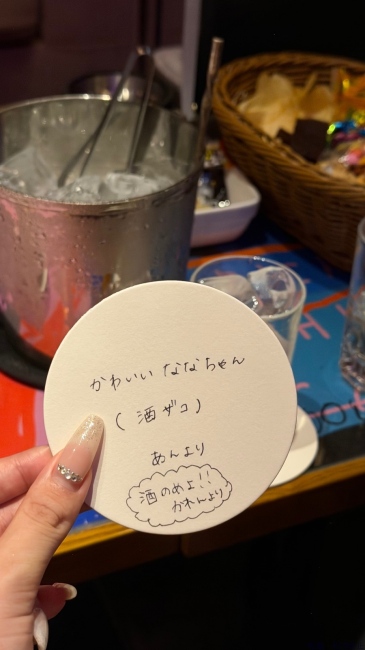 かわいい ななちゃん
(酒ザコ)
あんより
酒のめよ!!
かれんより